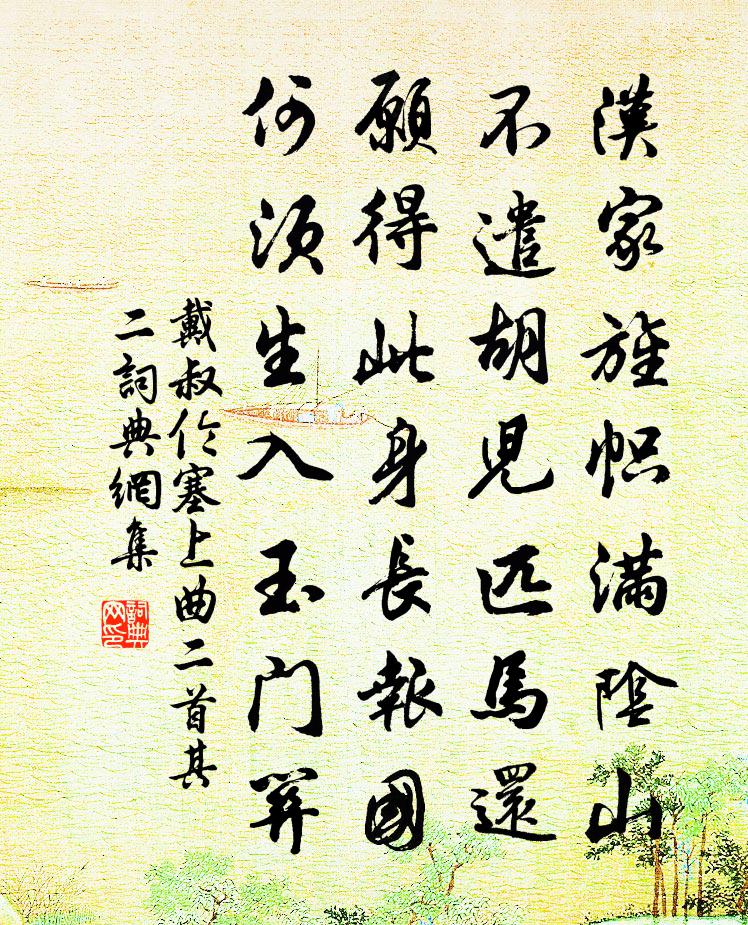 漢家旌幟滿陰山
不遣胡兒匹馬還
願得此身長報國
何須生入玉門關
戴叔倫塞上曲二首其
二詞典網集
詞典网印